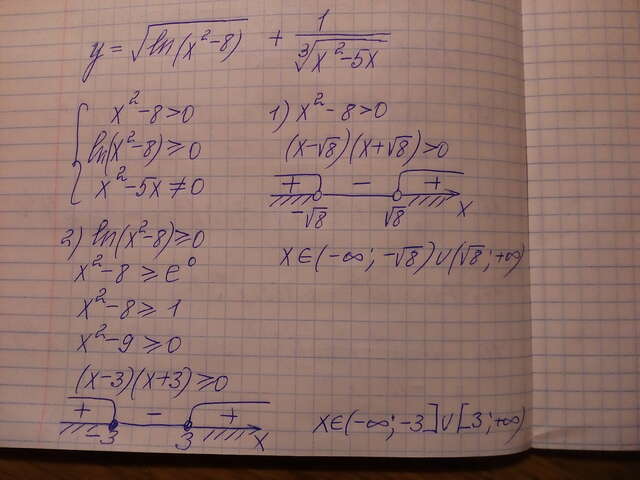 y = √ln(x²-8) + 1/∛x²-5x
{ x²-8>0
ln(x²-8) ⩾ 0
x²-5x ≠ 0
1) x²-8>0
(x-√8)(x+√8)>0
+ - +
-√8 √8 x
x∈(-∞; -√8)∪(√8; +∞)
2) ln(x²-8)⩾0
x²-8 ⩾ e⁰
x²-8 ⩾ 1
x²-9 ⩾ 0
(x-3)(x+3)⩾0
+ - +
-3 3 x
x∈(-∞; -3]∪[3; +∞)